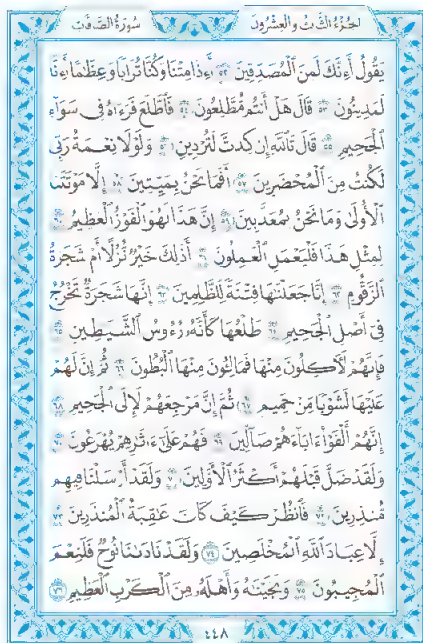 الجزء الثالث والعشرون سورة الصافات
يَقُولُ أَءِنَّكَ لَمِنَ ٱلْمُصَدِّقِينَ ٥٢ أَءِذَا مِتْنَا وَكُنَّا تُرَابًا وَعِظَٰمًا أَءِنَّا
لَمَدِينُونَ ٥٣ قَالَ هَلْ أَنتُم مُّطَّلِعُونَ ٥٤ فَٱطَّلَعَ فَرَءَاهُ فِى سَوَآءِ
ٱلْجَحِيمِ ٥٥ قَالَ تَٱللَّهِ إِن كِدتَّ لَتُرْدِينِ ٥٦ وَلَوْلَا نِعْمَةُ رَبِّى
لَكُنتُ مِنَ ٱلْمُحْضَرِينَ ٥٧ أَفَمَا نَحْنُ بِمَيِّتِينَ ٥٨ إِلَّا مَوْتَتَنَا
ٱلْأُولَىٰ وَمَا نَحْنُ بِمُعَذَّبِينَ ٥٩ إِنَّ هَٰذَا لَهُوَ ٱلْفَوْزُ ٱلْعَظِيمُ ٦٠
لِمِثْلِ هَٰذَا فَلْيَعْمَلِ ٱلْعَٰمِلُونَ ٦١ أَذَٰلِكَ خَيْرٌ نُّزُلًا أَمْ شَجَرَةُ
ٱلزَّقُّومِ ٦٢ إِنَّا جَعَلْنَٰهَا فِتْنَةً لِّلظَّٰلِمِينَ ٦٣ إِنَّهَا شَجَرَةٌ تَخْرُجُ
فِىٓ أَصْلِ ٱلْجَحِيمِ ٦٤ طَلْعُهَا كَأَنَّهُۥ رُءُوسُ ٱلشَّيَٰطِينِ ٦٥
فَإِنَّهُمْ لَءَاكِلُونَ مِنْهَا فَمَالِـُٔونَ مِنْهَا ٱلْبُطُونَ ٦٦ ثُمَّ إِنَّ لَهُمْ
عَلَيْهَا لَشَوْبًا مِّنْ حَمِيمٍ ٦٧ ثُمَّ إِنَّ مَرْجِعَهُمْ لَإِلَى ٱلْجَحِيمِ ٦٨
إِنَّهُمْ أَلْفَوْا۟ ءَابَآءَهُمْ ضَآلِّينَ ٦٩ فَهُمْ عَلَىٰٓ ءَاثَٰرِهِمْ يُهْرَعُونَ ٧٠
وَلَقَدْ ضَلَّ قَبْلَهُمْ أَكْثَرُ ٱلْأَوَّلِينَ ٧١ وَلَقَدْ أَرْسَلْنَا فِيهِم
مُّنذِرِينَ ٧٢ فَٱنظُرْ كَيْفَ كَانَ عَٰقِبَةُ ٱلْمُنذَرِينَ ٧٣
إِلَّا عِبَادَ ٱللَّهِ ٱلْمُخْلَصِينَ ٧٤ وَلَقَدْ نَادَىٰنَا نُوحٌ فَلَنِعْمَ
ٱلْمُجِيبُونَ ٧٥ وَنَجَّيْنَٰهُ وَأَهْلَهُۥ مِنَ ٱلْكَرْبِ ٱلْعَظِيمِ ٧٦
٤٤٨